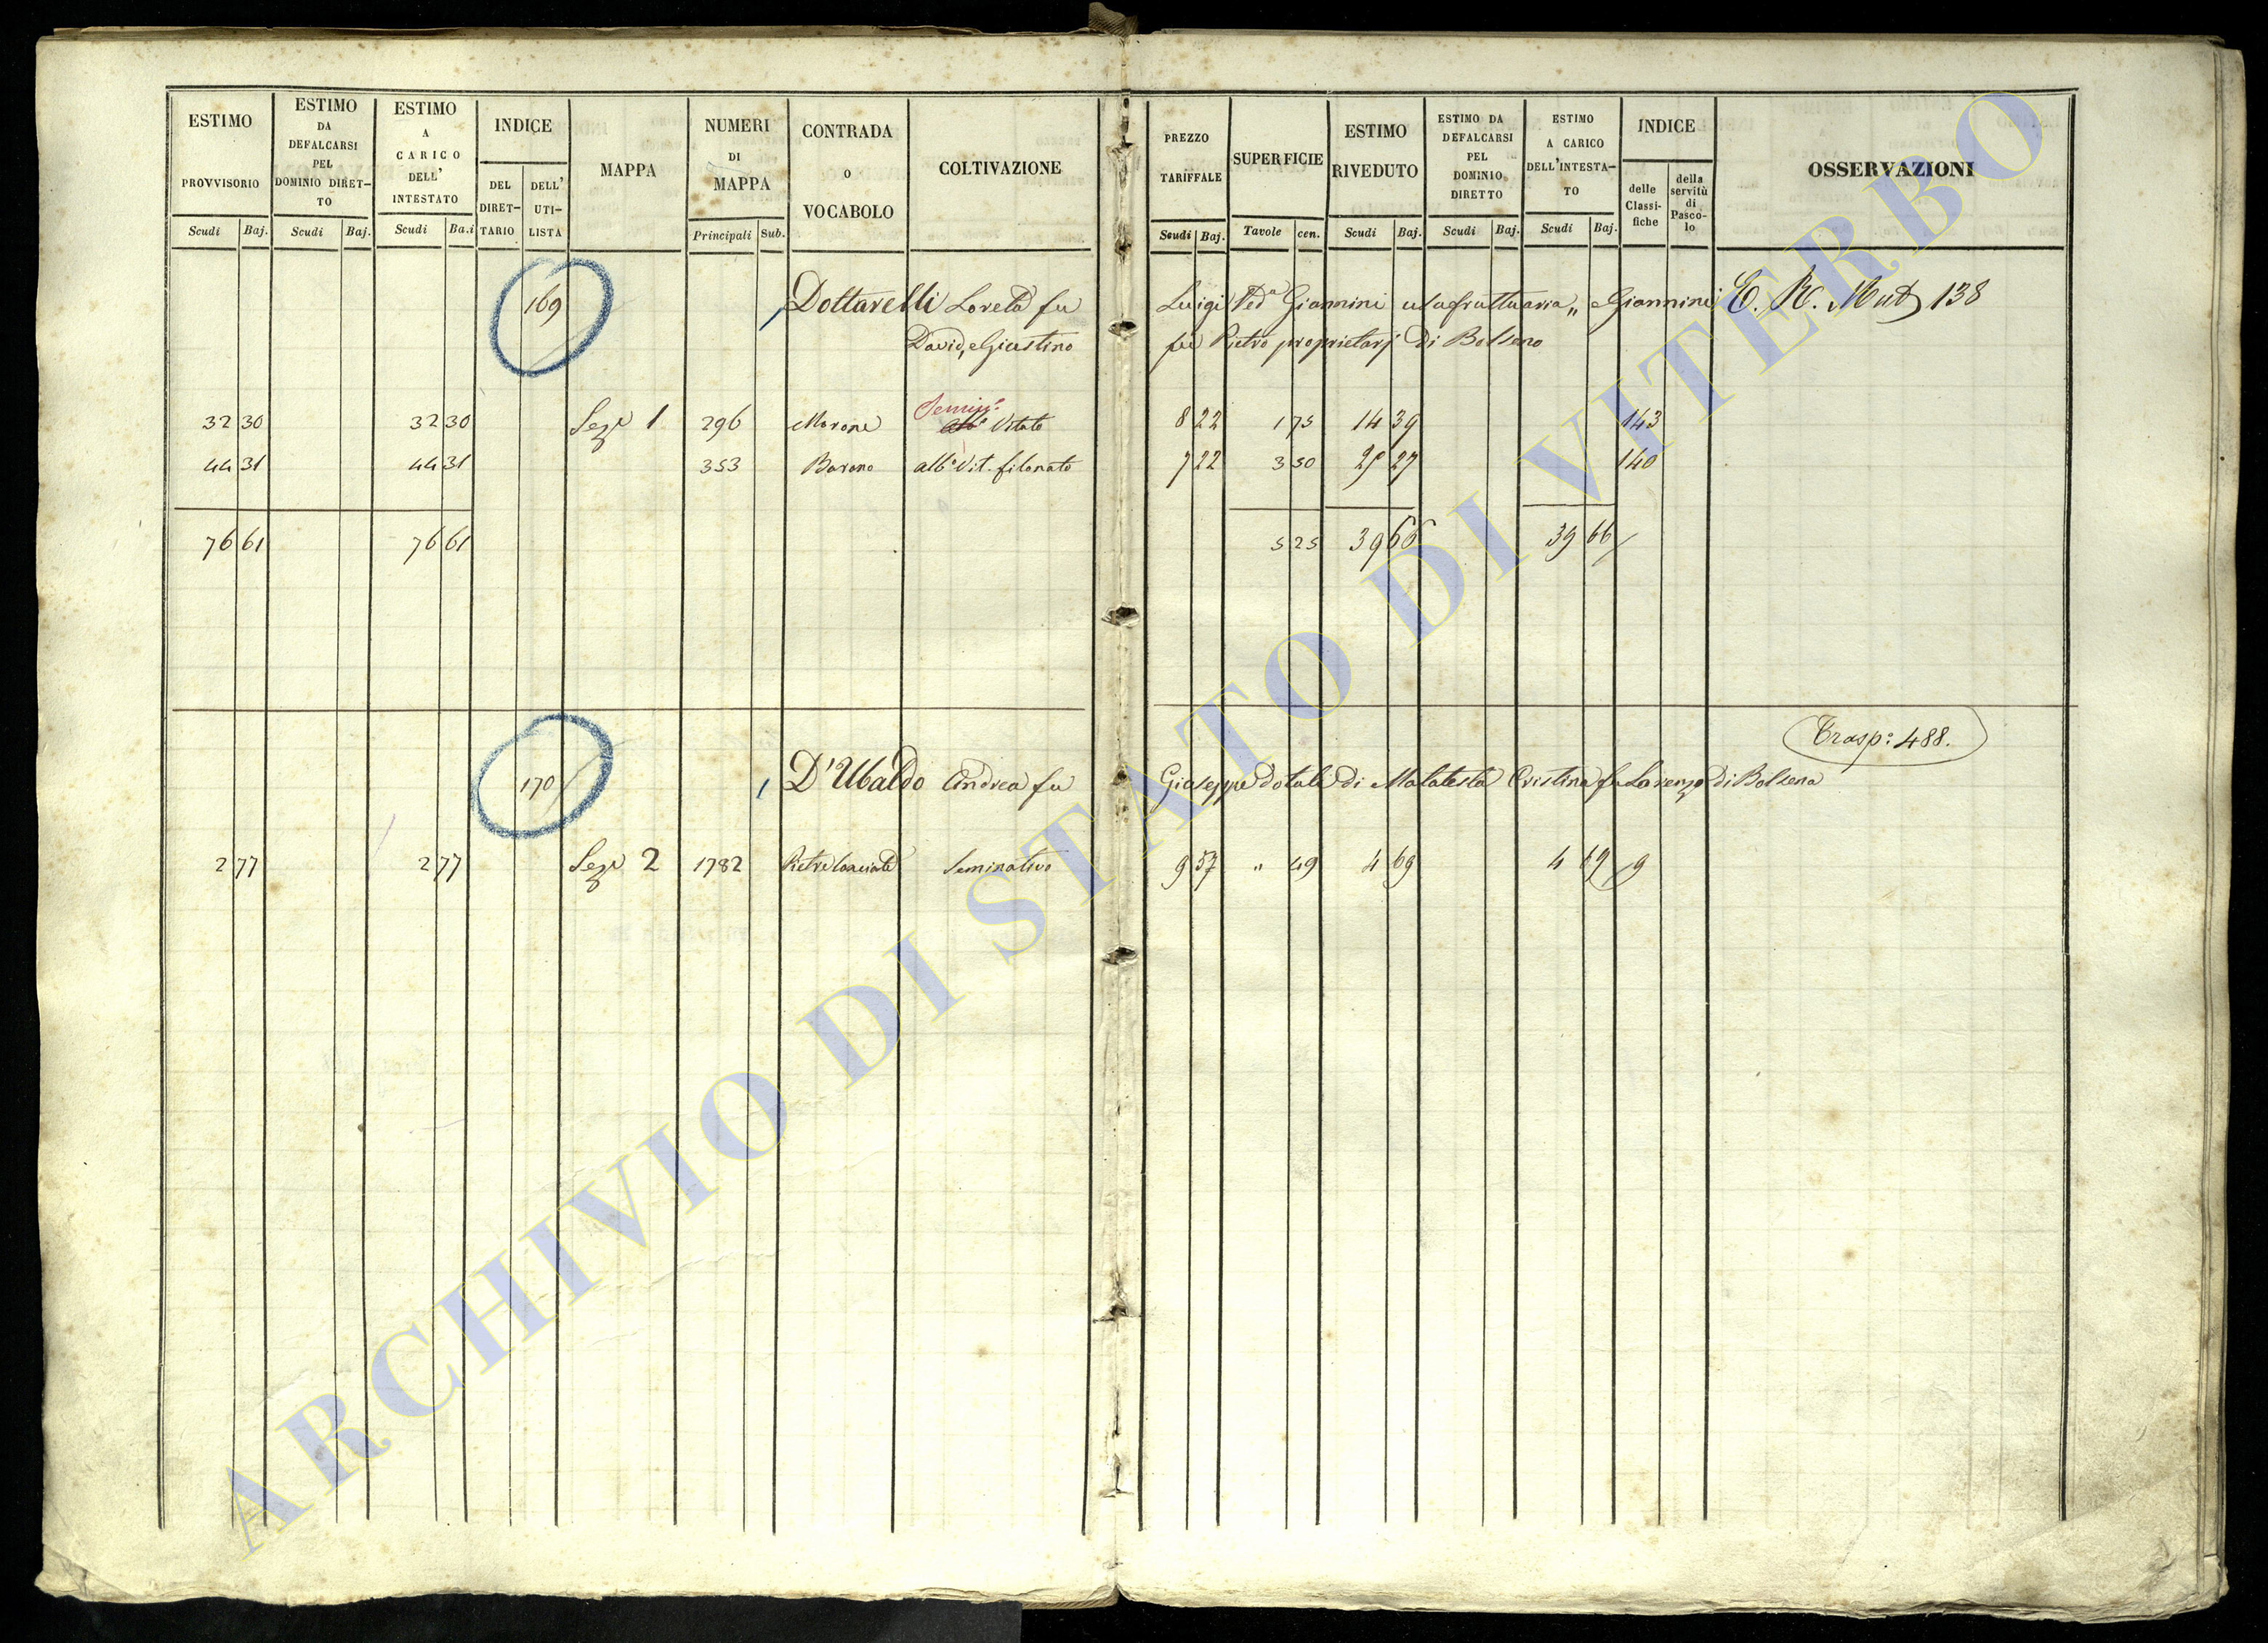 ESTIMO PROVVISORIO Scudi Baj.
ESTIMO DA DEFALCARSI PEL DOMINIO DIRET-TO Scudi Baj.
ESTIMO A CARICO DELL' INTESTATO Scudi Ba.i
INDICE DEL DIRET-TARIO DELL' UTI-LISTA
MAPPA
NUMERI DI MAPPA Principali Sub.
CONTRADA o VOCABOLO
COLTIVAZIONE
PREZZO TARIFFALE Scudi Baj.
SUPERFICIE Tavole cen.
ESTIMO RIVEDUTO Scudi Baj.
ESTIMO DA DEFALCARSI PEL DOMINIO DIRETTO Scudi Baj.
ESTIMO A CARICO DELL'INTESTA-TO Scudi Baj.
INDICE delle Classi-fiche della servitù di Pasco-lo
OSSERVAZIONI
169 Dottarelli Loreta fu Luigi Ved.a Giannini usufruttuaria „ e Giannini E. R. Mut 138
David, e Giustino fu Pietro proprietarj di Bolsena
Semin.o
32 30 32 30 Sez.e 1 296 Marone Vitato 8 22 1 75 14 39 143
44 31 44 31 353 Barano alb.o Vit. filonato 7 22 3 50 25 27 140
76 61 76 61 5 25 39 66 39 66
Trasp: 488.
170 D'Ubaldo Andrea fu Giuseppe dotale di Malatesta Cristina fu Lorenzo di Bolsena
2 77 2 77 Sez.e 2 1782 Pietre lanciate Seminativo 9 57 " 49 4 69 4 69 9
ARCHIVIO DI STATO DI VITERBO